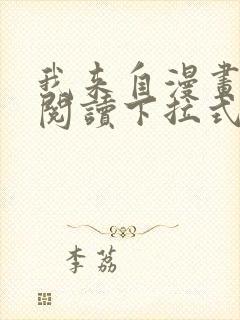 我来自漫畫
閱讀下拉式
李荔